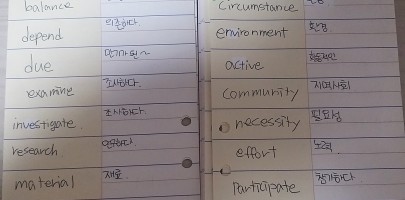 balance
depend 의존하다.
due 만기가 된~
examine 조사하다.
investigate 조사하다.
research 연구하다.
material 재료.
circumstance
environment 환경
active
community 지역사회
necessity 필요성
effort 노력
participate 참가하다.